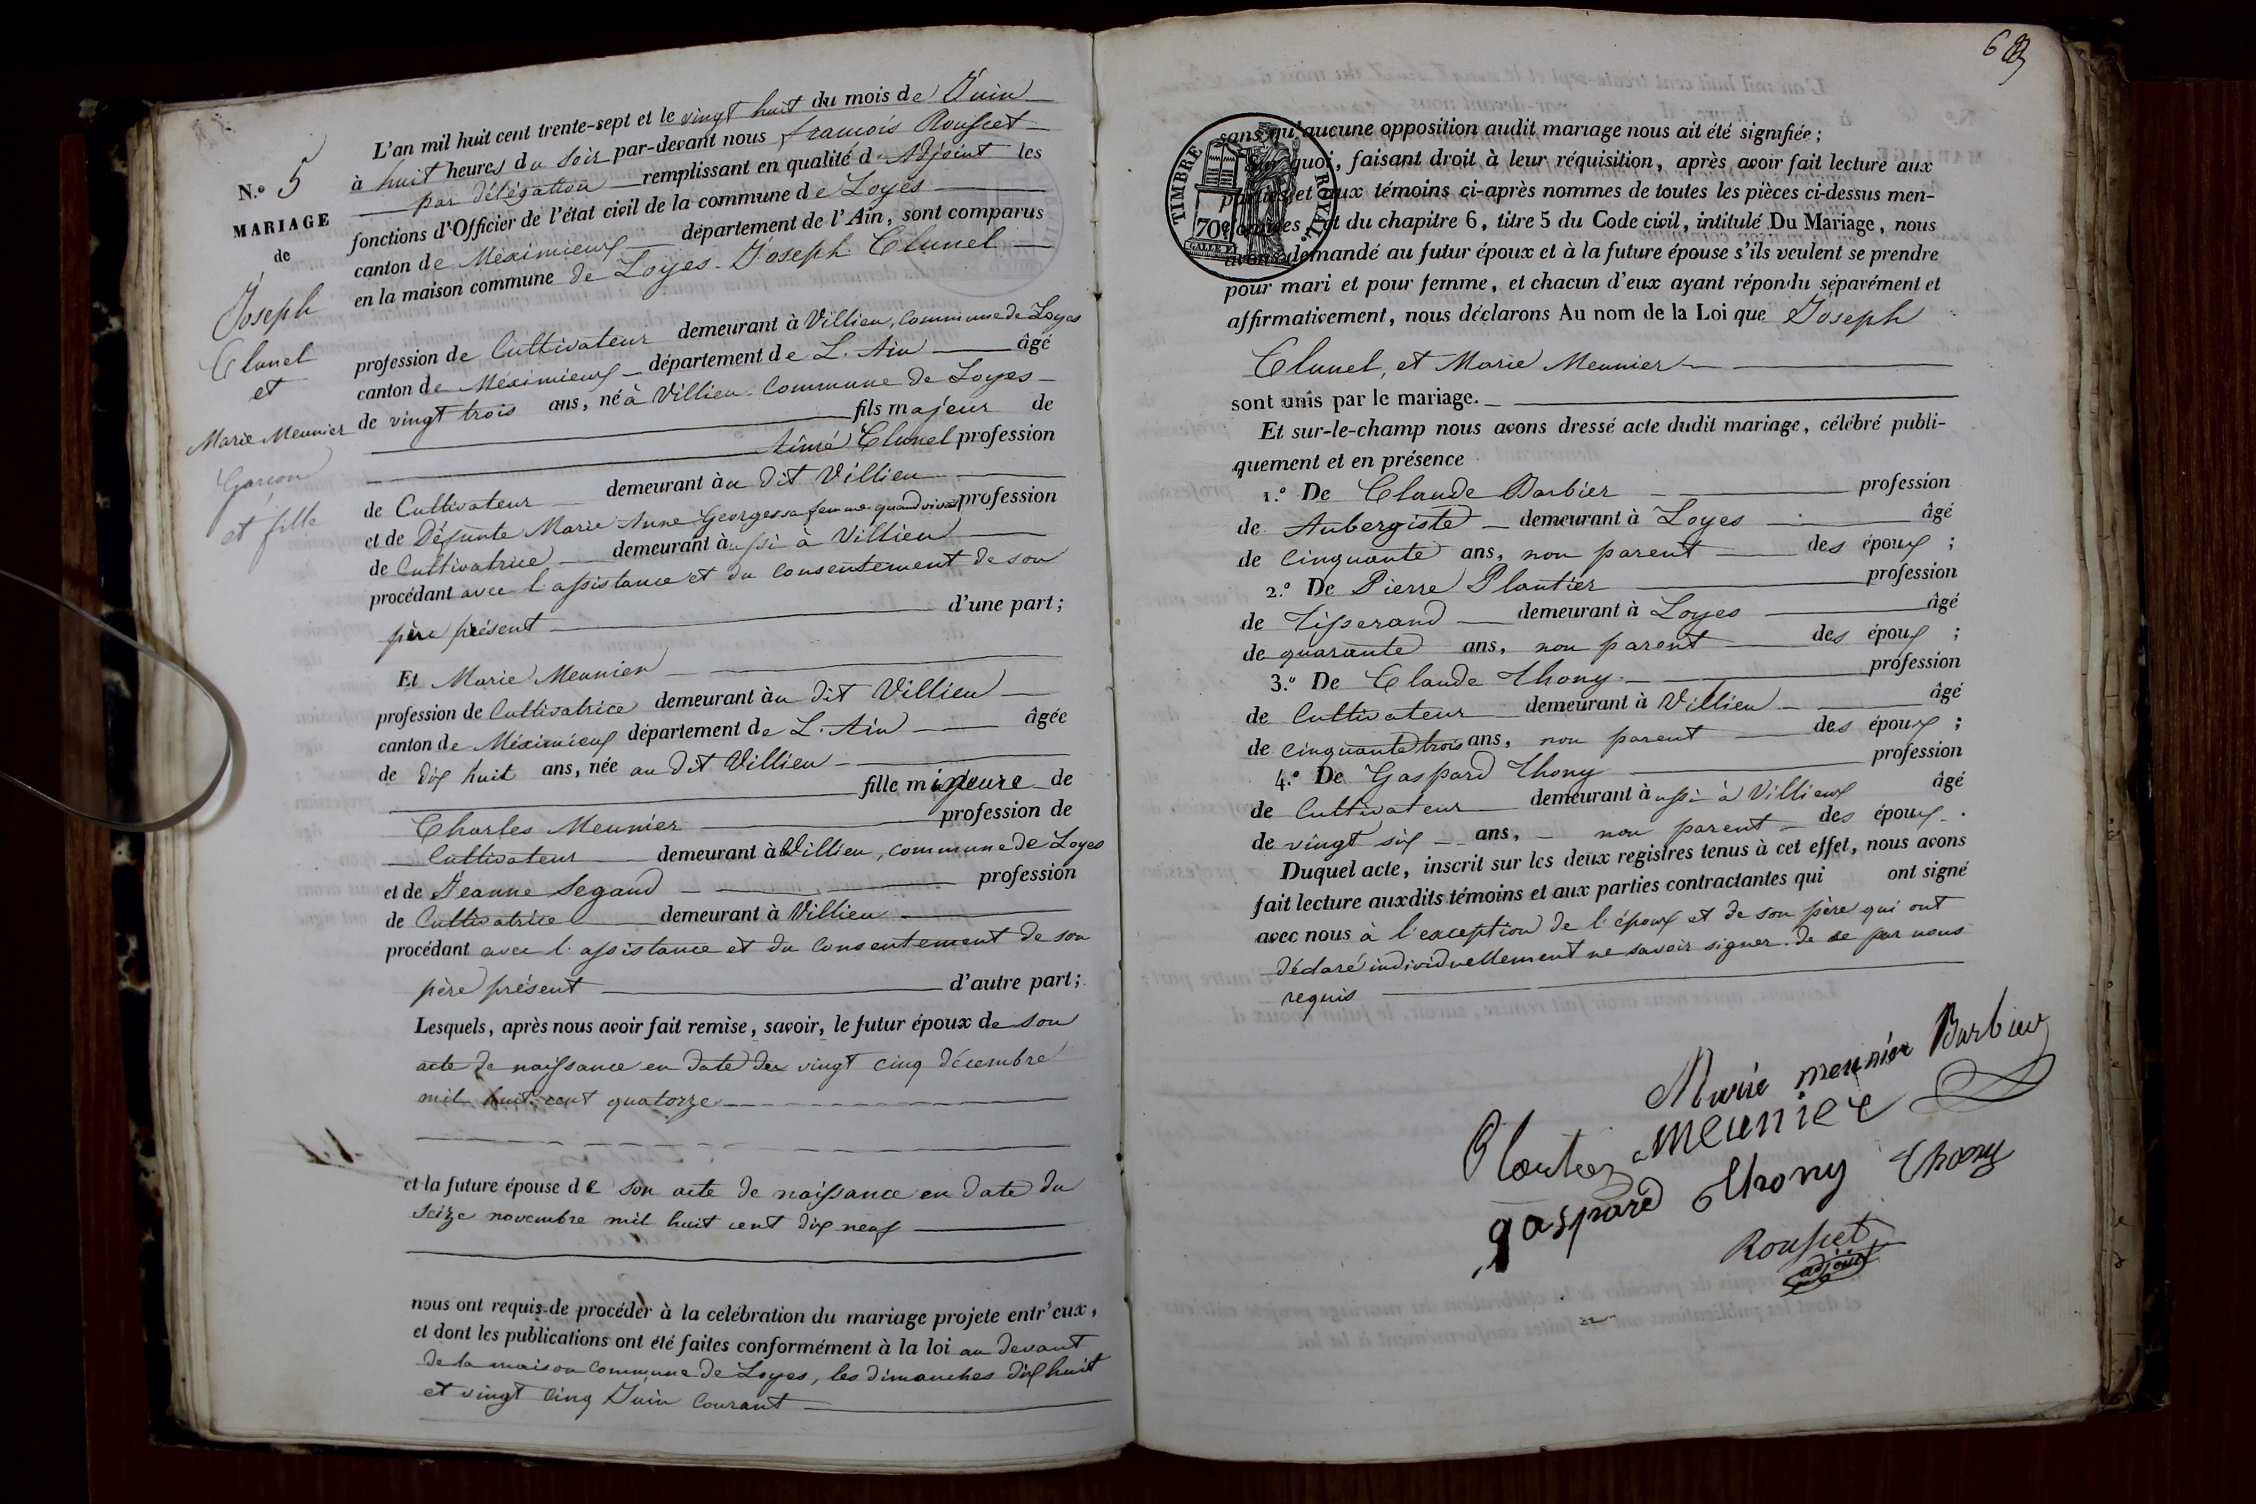 N.o 5
MARIAGE
de
Joseph
Clunel
et
Marie Meunier
Garçon
et fille
L'an mil huit cent trente-sept et le vingt huit du mois de Juin
à huit heures du soir par-devant nous françois Rousset
par délégation remplissant en qualité d. Adjoint les
fonctions d'Officier de l'état civil de la commune de Loyes
canton de Méximieux département de l'Ain, sont comparus
en la maison commune de Loyes. Joseph Clunel
profession de Cultivateur demeurant à Villieu, commune de Loyes
canton de Méximieux département de L. Ain âgé
de vingt trois ans, né à Villieu. Commune de Loyes
fils majeur de
Aimé Clunel profession
de Cultivateur demeurant àu dit Villieu
et de Défunte Marie Anne Georges sa femme quand vivait profession
de Cultivatrice demeurant àussi à Villieu
procédant avec l'assistance et du consentement de son
père présent d'une part;
Et Marie Meunier
profession de Cultivatrice demeurant àu dit Villieu
canton de Méximieux département de L. Ain âgée
de dix huit ans, née au dit Villieu
fille mineure de
Charles Meunier profession de
Cultivateur demeurant à Villieu, commune de Loyes
et de Jeanne Segaud profession
de Cultivatrice demeurant à Villieu
procédant avec l'assistance et du consentement de son
père présent d'autre part;
Lesquels, après nous avoir fait remise, savoir, le futur époux de son
acte de naissance en date du vingt cinq décembre
mil huit cent quatorze
et la future épouse de son acte de naissance en date du
seize novembre mil huit cent dix neuf
nous ont requis de procéder à la celébration du mariage projete entr'eux,
et dont les publications ont été faites conformément à la loi au devant
de la maison commune de Loyes, les dimanches dix huit
et vingt cinq Juin courant
68
TIMBRE ROYAL
70c
sans qu'aucune opposition audit mariage nous ait été signifiée;
Sur quoi, faisant droit à leur réquisition, après avoir fait lecture aux
parties et aux témoins ci-après nommes de toutes les pièces ci-dessus men-
tionnées, et du chapitre 6, titre 5 du Code civil, intitulé Du Mariage, nous
avons demandé au futur époux et à la future épouse s'ils veulent se prendre
pour mari et pour femme, et chacun d'eux ayant répondu séparément et
affirmativement, nous déclarons Au nom de la Loi que Joseph
Clunel, et Marie Meunier
sont unis par le mariage.
Et sur-le-champ nous avons dressé acte dudit mariage, célébré publi-
quement et en présence
1.o De Claude Barbier profession
de Aubergiste demeurant à Loyes âgé
de cinquante ans, non parent des époux;
2.o De Pierre Plantier profession
de Tisserand demeurant à Loyes âgé
de quarante ans, non parent des époux;
3.o De Claude Thony profession
de Cultivateur demeurant à Villieu âgé
de cinquante trois ans, non parent des époux;
4.o De Gaspard Thony profession
de Cultivateur demeurant àussi à Villieux âgé
de vingt six ans, non parent des époux.
Duquel acte, inscrit sur les deux registres tenus à cet effet, nous avons
fait lecture auxdits témoins et aux parties contractantes qui ont signé
avec nous à l'exception de l'époux et de son père qui ont
déclaré individuellement ne savoir signer. de ce par nous
requis
Marie meunier Barbier
Plantier meunier
gaspard Thony Thony
Rousset
adjoint